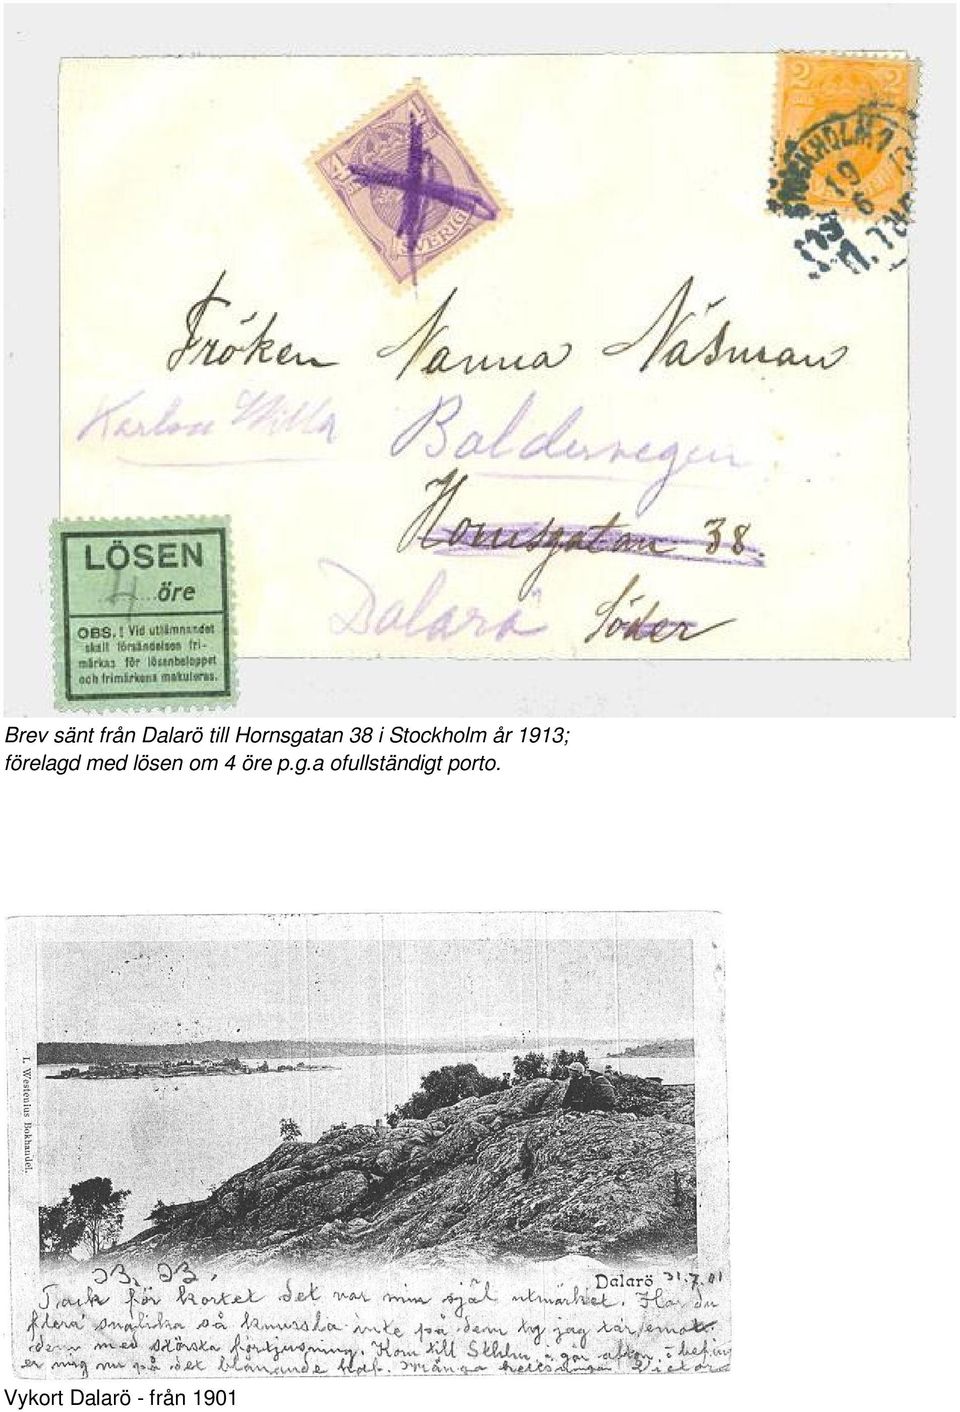 2 2
4 4
SVERIGE
STOCKHOLM 1
19 6 13
Fröken Nanna Näsman
Karlsa Villa Baldersvegen
Hornsgatan 38.
Dalarö Söder
LÖSEN
4 öre
OBS.! Vid utlämnandet
skall försändelsen fri-
märkas för lösenbeloppet
och frimärkena makuleras.
Brev sänt från Dalarö till Hornsgatan 38 i Stockholm år 1913;
förelagd med lösen om 4 öre p.g.a ofullständigt porto.
I. Westenius Bokhandel.
Dalarö 31.7.01
B. B.
Tack för kortet det var min själ utmärket. Har du
flera snälika så knussla inte på dem ty jag tar emot
dem med största förtjusning. Kom till Sthlm i går afton o befin
er mig nu på det blånande haf. Många helsningar Victor
Vykort Dalarö - från 1901